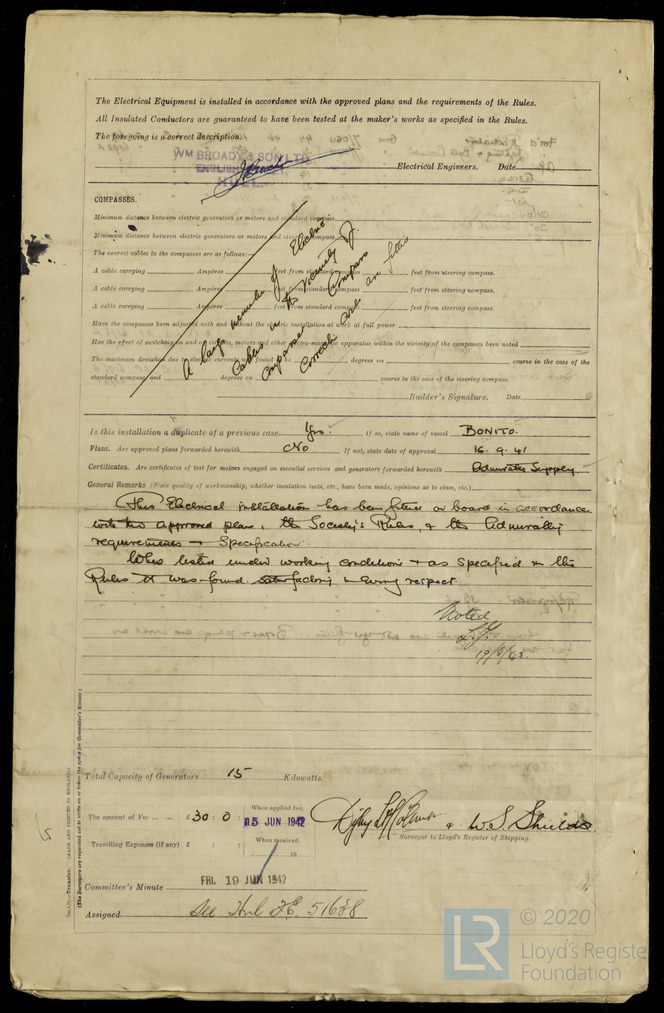 The Electrical Equipment is installed in accordance with the approved plans and the requirements of the Rules.
All Insulated Conductors are guaranteed to have been tested at the maker's works as specified in the Rules.
The foregoing is a correct description.
WM BROADY & SON LTD
ENGLISH
HULL
Electrical Engineers. Date
COMPASSES.
Minimum distance between electric generators or motors and standard compass
Minimum distance between electric generators or motors and steering compass
The nearest cables to the compasses are as follows:—
A cable carrying Ampères feet from standard compass feet from steering compass.
A cable carrying Ampères feet from standard compass feet from steering compass.
A cable carrying Ampères feet from standard compass feet from steering compass.
Have the compasses been adjusted with and without the electric installation at work at full power
Have the effect of switching on and off motors and other electro-magnetic apparatus within the vicinity of the compasses been noted
The maximum deviation due to electric currents was found to be degrees on course in the case of the
standard compass and degrees on course in the case of the steering compass.
A large number of Electric
Cables in the vicinity of
Compasses. Compass
Correctors are on fitted
Builder's Signature. Date
Is this installation a duplicate of a previous case Yes. If so, state name of vessel BONITO.
Plans. Are approved plans forwarded herewith No If not, state date of approval 16.9.41
Certificates. Are certificates of test for motors engaged on essential services and generators forwarded herewith Admiralty Supply.
General Remarks (State quality of workmanship, whether insulation tests, etc., have been made, opinions as to class, etc.)
This Electrical installation has been fitted on board in accordance
with the approved plans, the Society's Rules, & the Admiralty
requirements & Specification.
When tested under working conditions & as specified in the
Rules it was found satisfactory in every respect.
Noted
19/6/42.
Total Capacity of Generators 15 Kilowatts.
The amount of Fee ... ... £ 30 : 0 : When applied for, 15 JUN 1942
Travelling Expenses (if any) £ : : When received, 19
& W. S. Shields
Surveyor to Lloyd's Register of Shipping.
Committee's Minute FRI. 19 JUN 1942
Assigned See Hul F.E. 51658
(MADE AND PRINTED IN ENGLAND.)
(The Surveyors are requested not to write on or below the space for Committee's Minute.)
© 2020
LR
Lloyd's Registe
Foundation